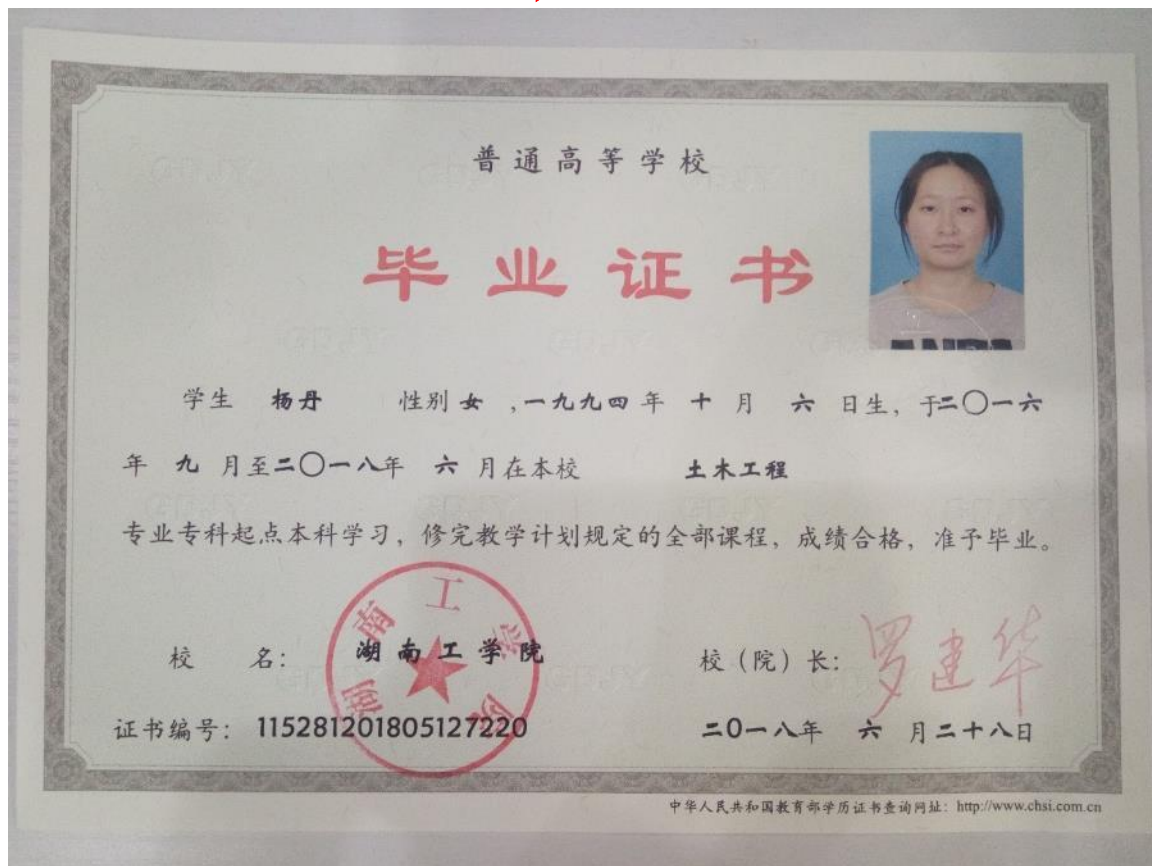 普通高等学校
毕业证书
学生 杨丹 性别 女 ，一九九四 年 十 月 六 日生，于二〇一六
年 九 月至二〇一八年 六 月在本校 土木工程
专业专科起点本科学习，修完教学计划规定的全部课程，成绩合格，准予毕业。
校 名： 湖南工学院
校（院）长： 罗建华
湖南工学院
证书编号： 115281201805127220
二〇一八年 六 月二十八日
中华人民共和国教育部学历证书查询网址：http://www.chsi.com.cn